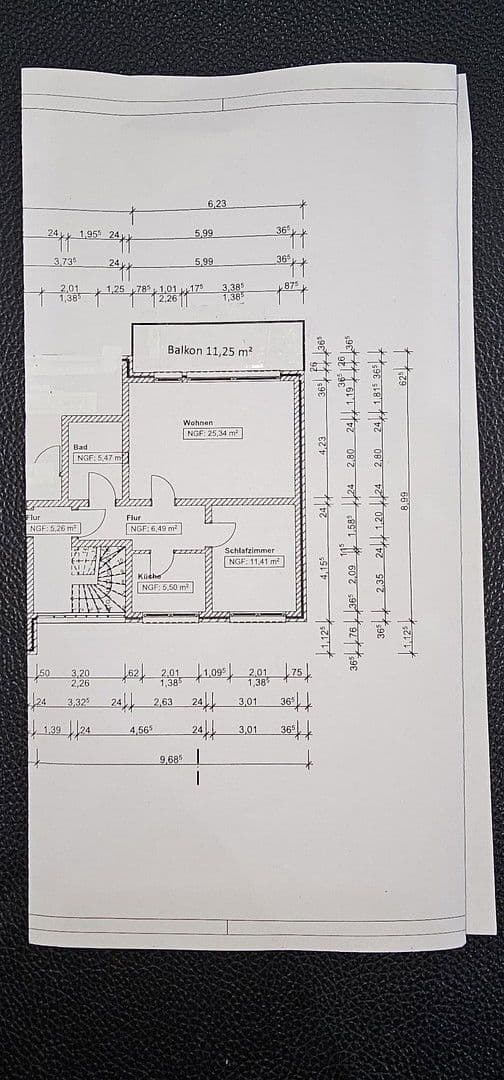 6,23
24 1,95⁵ 24 5,99 36⁵
3,73⁵ 24 5,99 36⁵
2,01 1,25 78⁵ 1,01 17⁵ 3,38⁵ 87⁵
1,38⁵ 2,26 1,38⁵
Balkon 11,25 m²
Wohnen
NGF: 25,34 m²
Bad
NGF: 5,47 m²
Flur
NGF: 5,26 m²
Flur
NGF: 6,49 m²
Schlafzimmer
NGF: 11,41 m²
Küche
NGF: 5,50 m²
36⁵ 26 36⁵ 4,23 24 4,15⁵ 1,12⁵
36⁵ 26 36⁵ 1,19 24 2,80 24 1,58⁵ 11⁵ 2,09 36⁵ 76 36⁵
36⁵ 1,81⁵ 24 2,80 24 1,20 24 2,35 36⁵
62⁵ 8,99 1,12⁵
50 3,20 62 2,01 1,09⁵ 2,01 75
2,26 1,38⁵ 1,38⁵
24 3,32⁵ 24 2,63 24 3,01 36⁵
1,39 24 4,56⁵ 24 3,01 36⁵
9,68⁵